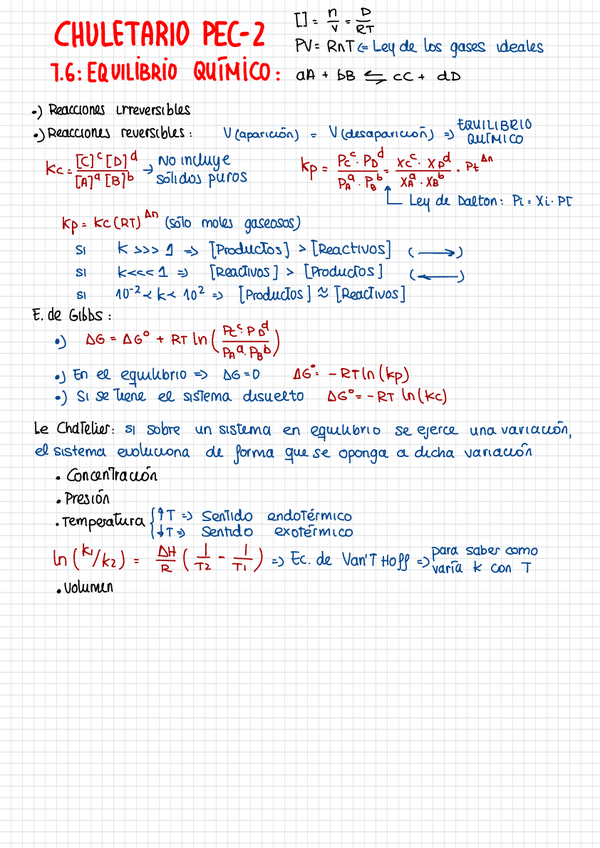 CHULETARIO PEC-2
[] = n/V = P/RT
PV = RnT <= Ley de los gases ideales
T.6: EQUILIBRIO QUÍMICO: aA + bB ⇆ cC + dD
·) Reacciones irreversibles
·) Reacciones reversibles: V(aparición) = V(desaparición) => EQUILIBRIO QUÍMICO
Kc = [C]^c [D]^d / [A]^a [B]^b → NO incluye sólidos puros
Kp = Pc^c · PD^d / PA^a · PB^b = Xc^c · XD^d / XA^a · XB^b · Pt^Δn
Ley de Dalton: Pi = Xi · PT
Kp = Kc (RT)^Δn (sólo moles gaseosos)
SI K >>> 1 => [Productos] > [Reactivos] (→)
SI K <<< 1 => [Reactivos] > [Productos] (←)
SI 10^-2 < K < 10^2 => [Productos] ≈ [Reactivos]
E. de Gibbs:
·) ΔG = ΔG° + RT ln (Pc^c · PD^d / PA^a · PB^b)
·) En el equilibrio => ΔG = 0 ΔG° = -RT ln (Kp)
·) Si se tiene el sistema disuelto ΔG° = -RT ln (Kc)
Le Chatelier: si sobre un sistema en equilibrio se ejerce una variación,
el sistema evoluciona de forma que se oponga a dicha variación
· Concentración
· Presión
· Temperatura { ↑T => Sentido endotérmico
↓T => Sentido exotérmico
ln (K1/K2) = ΔH/R (1/T2 - 1/T1) => Ec. de Van'T Hoff => para saber como varía K con T
· Volumen